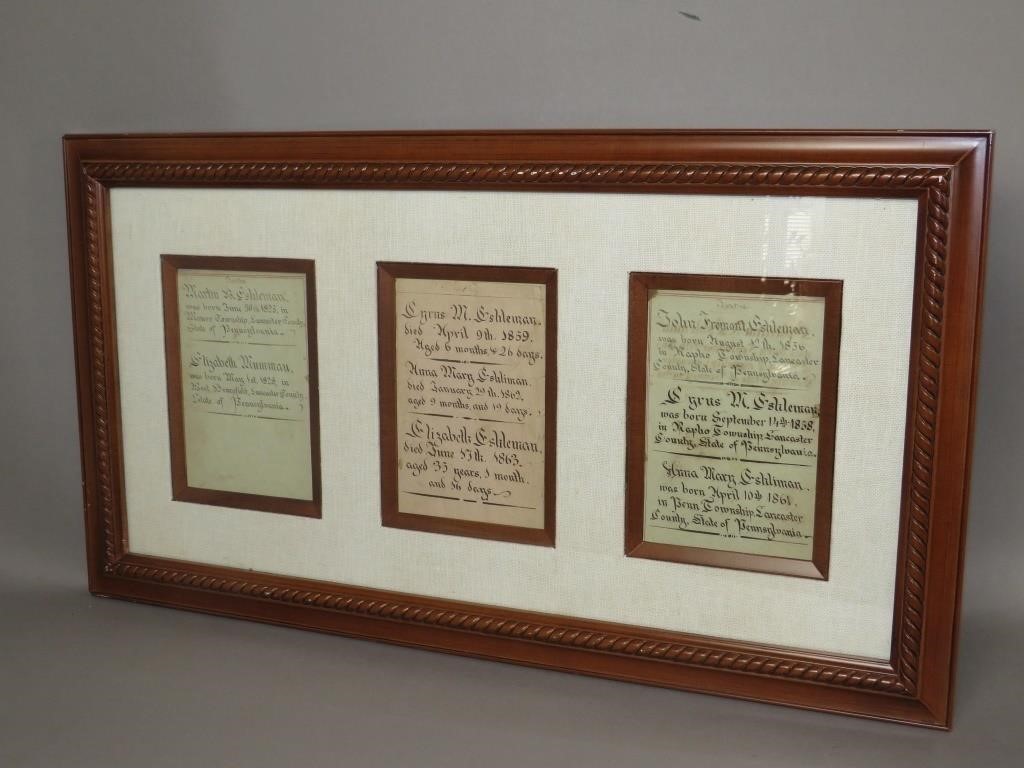 Martin B. Eshleman.
was born June 30th 1825, in
Manor Township, Lancaster County,
State of Pennsylvania.
Elizabeth Mumman.
was born May 1st 1828, in
West Hempfield, Lancaster County,
State of Pennsylvania.
Cyrus M. Eshleman.
died April 9th. 1859.
Aged 6 months, & 26 days.
Anna Mary Eshliman.
died January 29th. 1862,
aged 9 months, and 19 days.
Elizabeth Eshleman.
died June 17th. 1863.
aged 35 years, 1 month.
and 16 days.
John Fremont Eshleman.
was born August 12th. 1856.
in Rapho Township, Lancaster
County, State of Pennsylvania.
Cyrus M. Eshleman,
was born September 14th 1858.
in Rapho Township, Lancaster
County, State of Pennsylvania.
Anna Mary Eshliman.
was born April 10th 1861.
in Penn Township, Lancaster
County, State of Pennsylvania